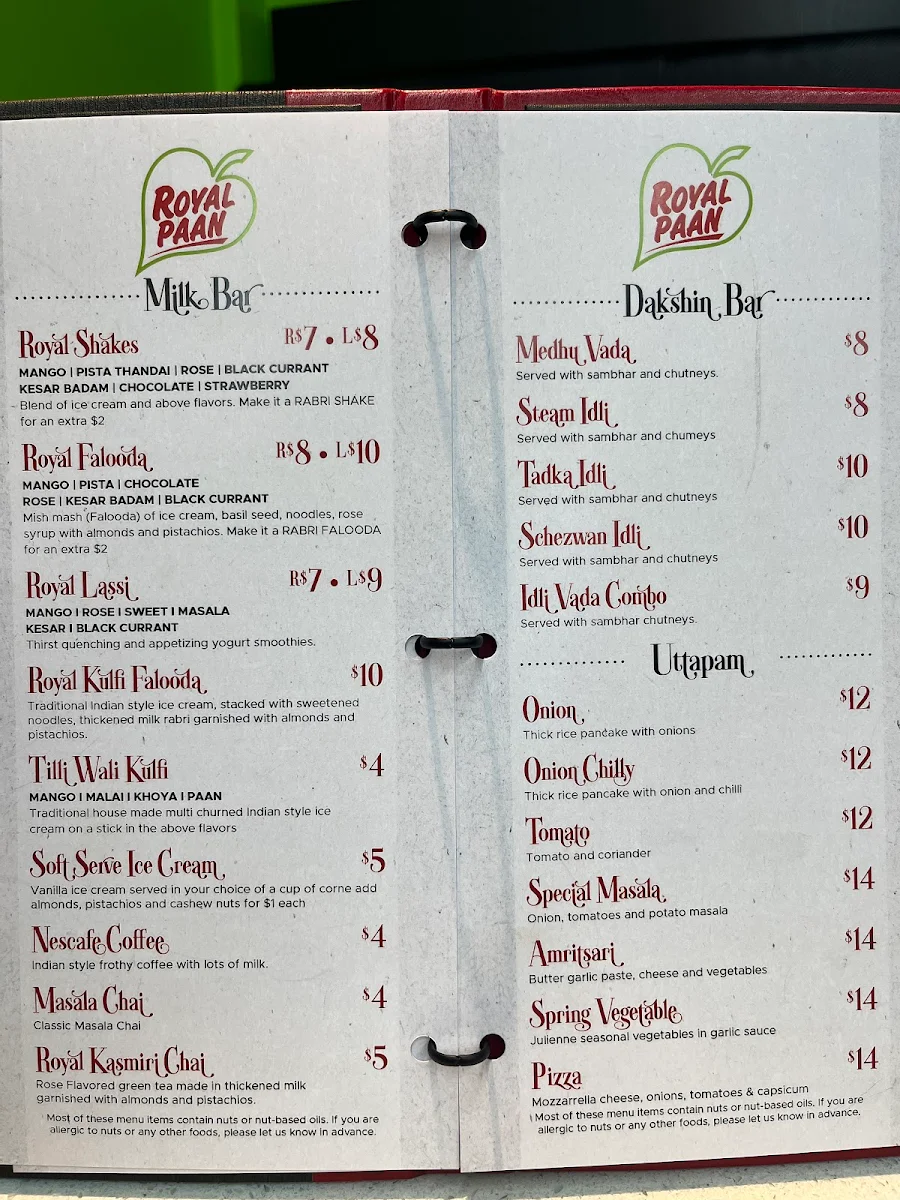 ROYAL
PAAN
Milk Bar
Royal Shakes R$7 • L$8
MANGO | PISTA THANDAI | ROSE | BLACK CURRANT
KESAR BADAM | CHOCOLATE | STRAWBERRY
Blend of ice cream and above flavors. Make it a RABRI SHAKE
for an extra $2
Royal Falooda R$8 • L$10
MANGO | PISTA | CHOCOLATE
ROSE | KESAR BADAM | BLACK CURRANT
Mish mash (Falooda) of ice cream, basil seed, noodles, rose
syrup with almonds and pistachios. Make it a RABRI FALOODA
for an extra $2
Royal Lassi R$7 • L$9
MANGO I ROSE I SWEET I MASALA
KESAR I BLACK CURRANT
Thirst quenching and appetizing yogurt smoothies.
Royal Kulfi Falooda $10
Traditional Indian style ice cream, stacked with sweetened
noodles, thickened milk rabri garnished with almonds and
pistachios.
Tilli Wali Kulfi $4
MANGO I MALAI I KHOYA I PAAN
Traditional house made multi churned Indian style ice
cream on a stick in the above flavors
Soft Serve Ice Cream $5
Vanilla ice cream served in your choice of a cup of corne add
almonds, pistachios and cashew nuts for $1 each
Nescafe Coffee $4
Indian style frothy coffee with lots of milk.
Masala Chai $4
Classic Masala Chai
Royal Kasmiri Chai $5
Rose Flavored green tea made in thickened milk
garnished with almonds and pistachios.
Most of these menu items contain nuts or nut-based oils. If you are
allergic to nuts or any other foods, please let us know in advance.
ROYAL
PAAN
Dakshin Bar
Medhu Vada $8
Served with sambhar and chutneys.
Steam Idli $8
Served with sambhar and chumeys
Tadka Idli $10
Served with sambhar and chutneys
Schezwan Idli $10
Served with sambhar and chutneys
Idli Vada Combo $9
Served with sambhar chutneys.
Uttapam
Onion $12
Thick rice pancake with onions
Onion Chilly $12
Thick rice pancake with onion and chilli
Tomato $12
Tomato and coriander
Special Masala $14
Onion, tomatoes and potato masala
Amritsari $14
Butter garlic paste, cheese and vegetables
Spring Vegetable $14
Julienne seasonal vegetables in garlic sauce
Pizza $14
Mozzarrella cheese, onions, tomatoes & capsicum
Most of these menu items contain nuts or nut-based oils. If you are
allergic to nuts or any other foods, please let us know in advance.